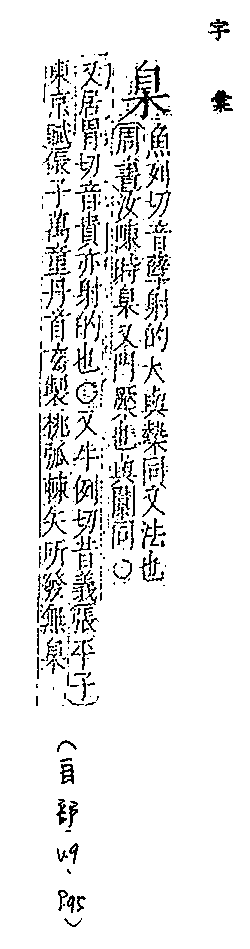 字彙
臬 魚列切音孽射的大與槷同又法也
周書汝陳時臬又門橜也與闑同○
又居胃切音貴亦射的也○又牛例切音義張平子
東京賦侲子萬童丹首玄製桃弧棘矢所發無臬
(自部·V.9、P.95)